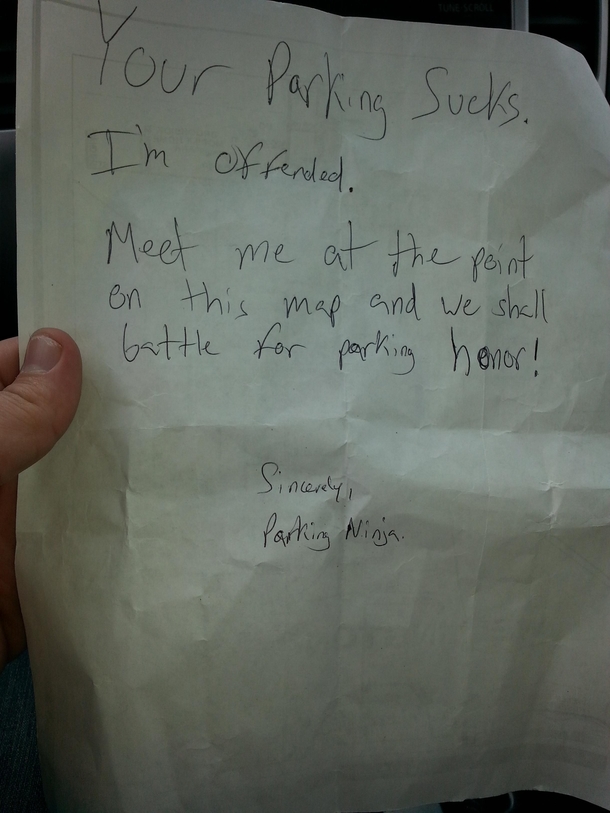 TUNE SCROLL
Your Parking Sucks.
I'm offended.
Meet me at the point
on this map and we shall
battle for parking honor!
Sincerely,
Parking Ninja.